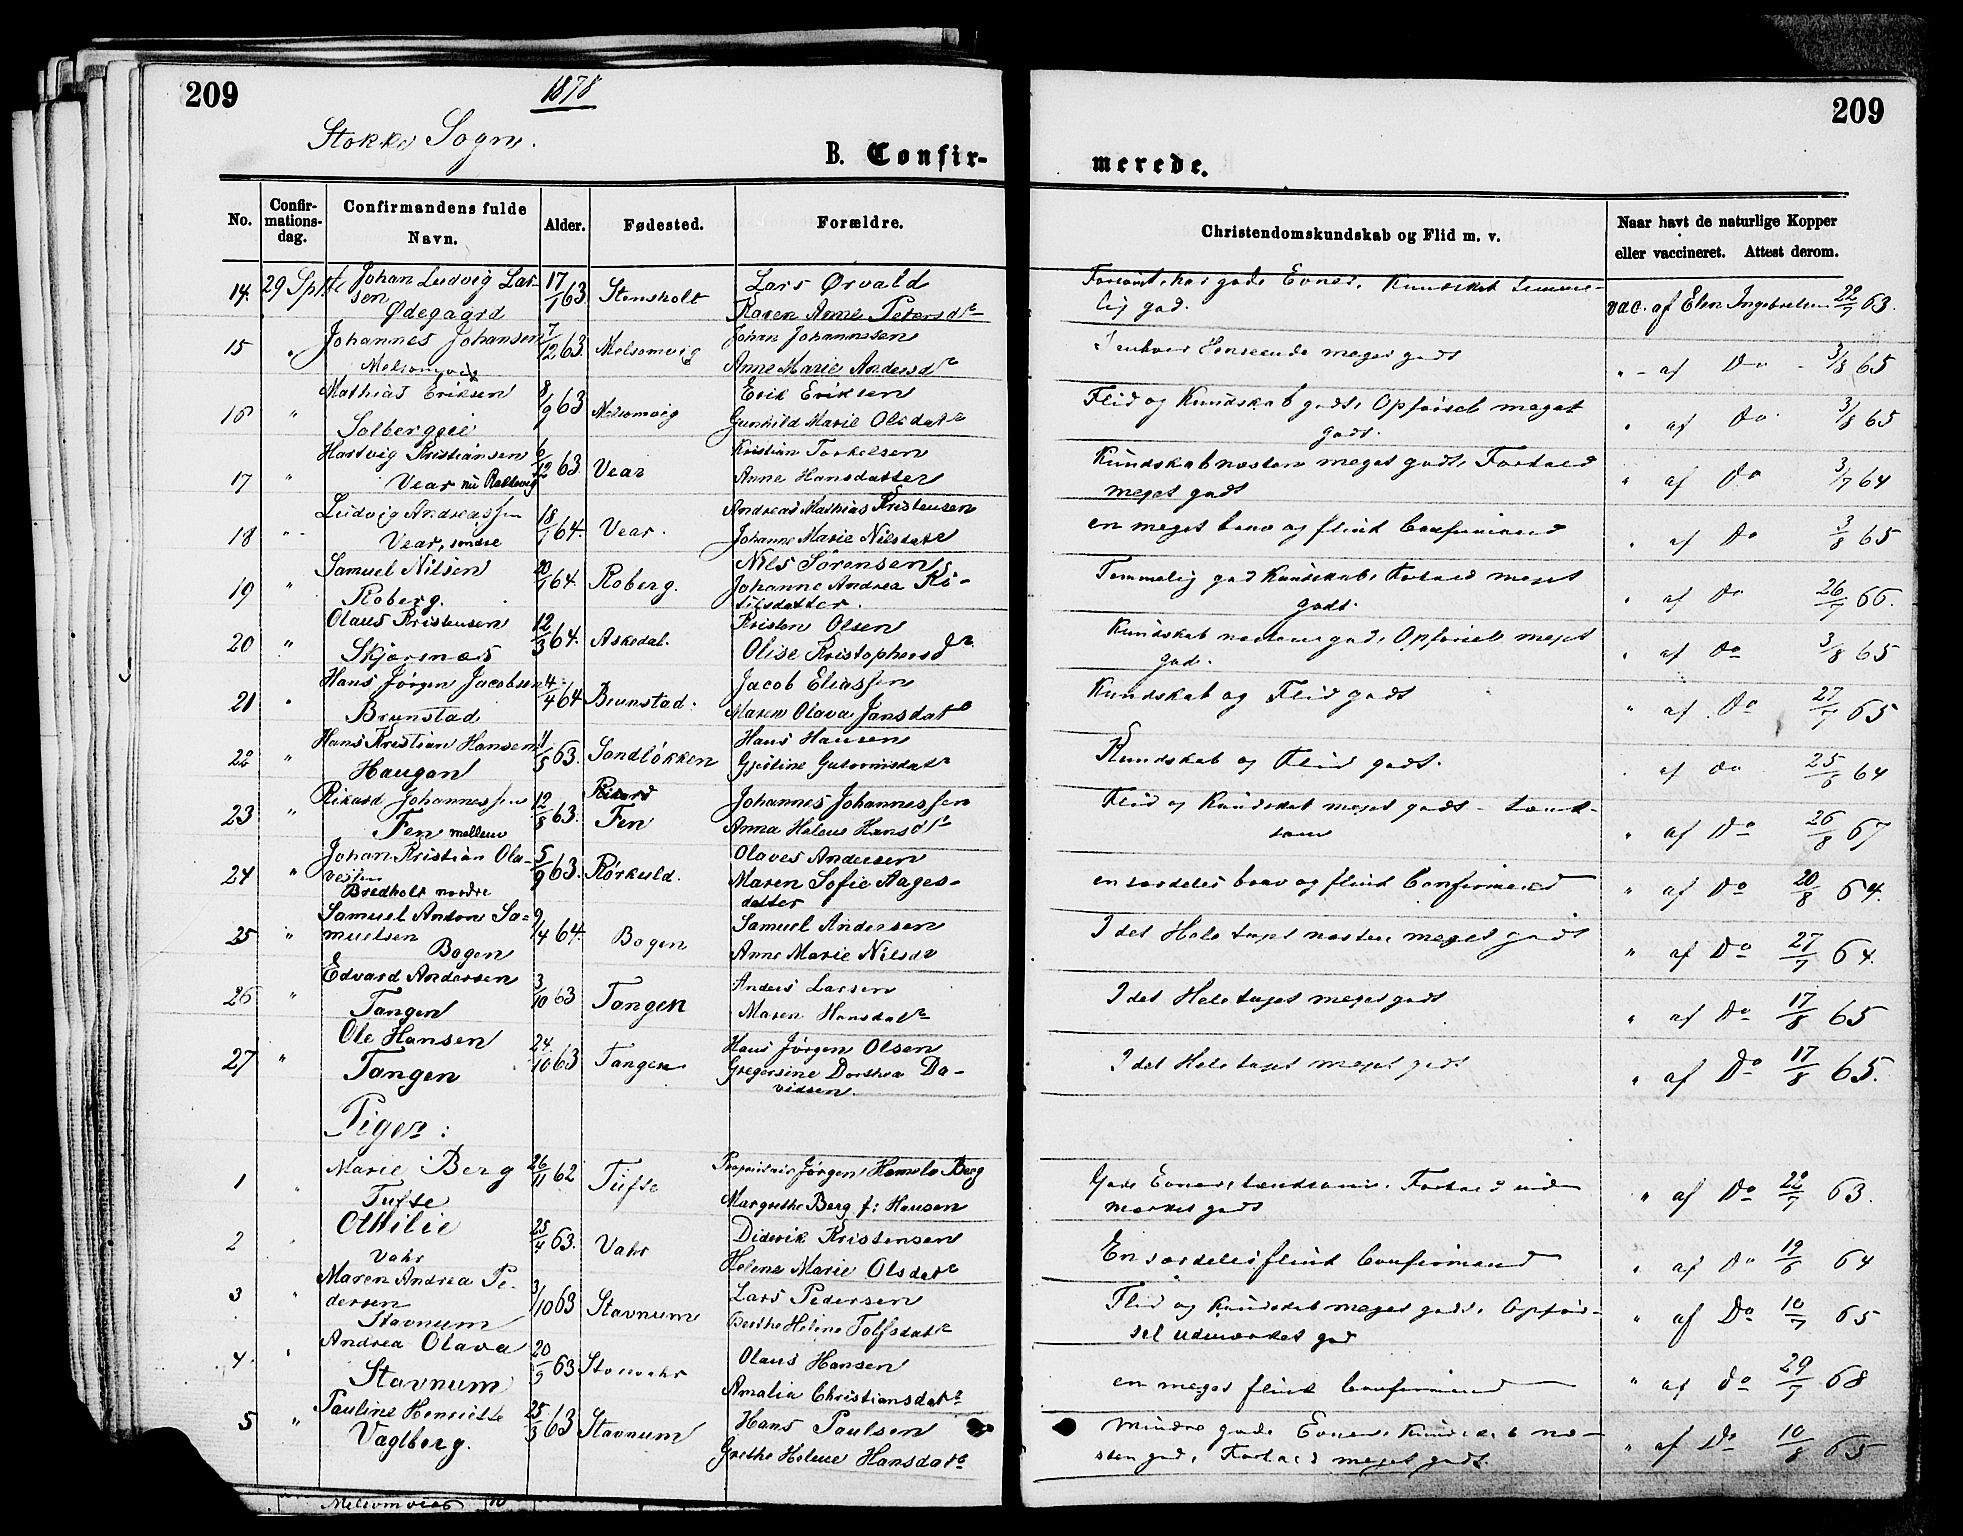 209
1878
209
Stokke Sogn.
B. Confir-
merede.
No.
Confir-
mations-
dag.
Confirmandens fulde
Navn.
Alder.
Fødested.
Forældre.
Christendomskundskab og Flid m. v.
Naar havt de naturlige Kopper
eller vaccineret. Attest derom.
14. 29 Johan Ludvig Lar- 17/1 63 Stensholt Lars Ørvald
sen
Ødegaard Karen Anne Petersdr
lig god.
vac. af Elen 22/7 63.
15 " Johannes Johansen 7/12 63. Melsomvig Johan Johannesen
Melsomvig Anne Marie Andersdr
I enhver Henseende meget godt
" - af Do 3/8 65
16 " Mathias Eriksen 8/9 63 Melsomvig Erik Eriksen
Solberggeie Gunhild Marie Olsdatr
Flid og Kundskab godt, Opførsel meget
godt.
" af do 3/8 65
17 " Hartvig Kristiansen 6/12 63 Vear Kristian Torkelsen
Vear nu Anne Hansdatter
Kundskab næsten meget godt, Forhold
meget godt
" af Do 3/7 64
18 " Ludvig Andreassen 18/1 64. Vear. Andreas Mathias Kristensen
Vear, søndre Johanne Marie Nilsdatr
en meget brav og flink Confirmand
" af Do 3/8 65
19 " Samuel Nilsen 20/1 64. Roberg. Nils Sørensen
Roberg. Johanne Andrea
datter.
Temmelig god Kundskab, Forhold meget
godt.
" af do 26/7 66.
20 " Olaus Kristensen 12/3 64. Askedal. Kristen Olsen
Skjærsnæs Olise Kristophersdr
Kundskab næsten god, Opførsel meget
god.
" af do 3/8 65
21 " Hans Jørgen Jacobsen 4/4 64 Brunstad. Jacob Eliassen
Brunstad Maren Olava Jansdatr
Kundskab og Flid godt
" af Do 27/7 65
22 " Hans Kristian Hansen 11/5 63. Sandløkken Hans Hansen
Haugen Gjestine Gutormsdatr
Kundskab og Flid godt.
" af do 25/8 64
23 " Rikard Johannessen 12/8 63. Fen Johannes Johannessen
Fen mellem Anna Helene Hansdtr
Flid og Kundskab meget godt - tænk-
som
" af Do 26/8 67
24 " Johan Kristian Ola- 5/9 63. Rørkuld. Olaves Andersen
vessen
Bredholt nordre Maren Sofie Aages-
datter
en særdeles brav og flink Confirmand
" af Do 20/8 64.
25 " Samuel Anton Sa- 9/4 64. Bogen Samuel Andersen
muelsen
Bogen Anne Marie Nilsdr
I det Hele taget næsten meget godt
" af Do 27/7 64.
26 " Edvard Andersen 3/10 63 Tangen Anders Larsen
Tangen Maren Hansdatr
I det Hele taget meget godt
" af Do 17/8 65
27 " Ole Hansen 24/10 63 Tangen Hans Jørgen Olsen
Tangen Gregersine Dorthea Da-
vidsen.
I det Hele taget meget godt
" af Do 17/8 65.
Piger:
1 " Marie Berg 26/11 62 Tufte Proprietair Jørgen Berg
Tufte Margrethe Berg f: Hansen
Gode Evner, lærdsom, Forhold ud-
mærket godt
" af Do 22/7 63.
2 " Othilie 25/4 63. Vahr Diderik Kristensen
Vahr Helene Marie Olsdatr
En særdeles flink Confirmand
" af Do 19/6 64
3 " Maren Andrea Pe- 3/10 63 Stavnum Lars Pedersen
dersen
Stavnum Berthe Helene Tolfsdatr
Flid og Kundskab meget godt, Opfør-
sel udmærket god
" af Do 10/7 65
4. " Andrea Olava 20/9 63 Olaus Hansen
Stavnum Amalia Christiansdatr
en meget flink Confirmand
" af do 29/7 68
5 " Pauline Henriette 25/3 63 Stavnum Hans Paulsen
Vaglberg. Grethe Helene Hansdatr
Mindre gode Evner, Kundskab næ-
sten god, Forhold meget godt.
" af Do 10/8 65